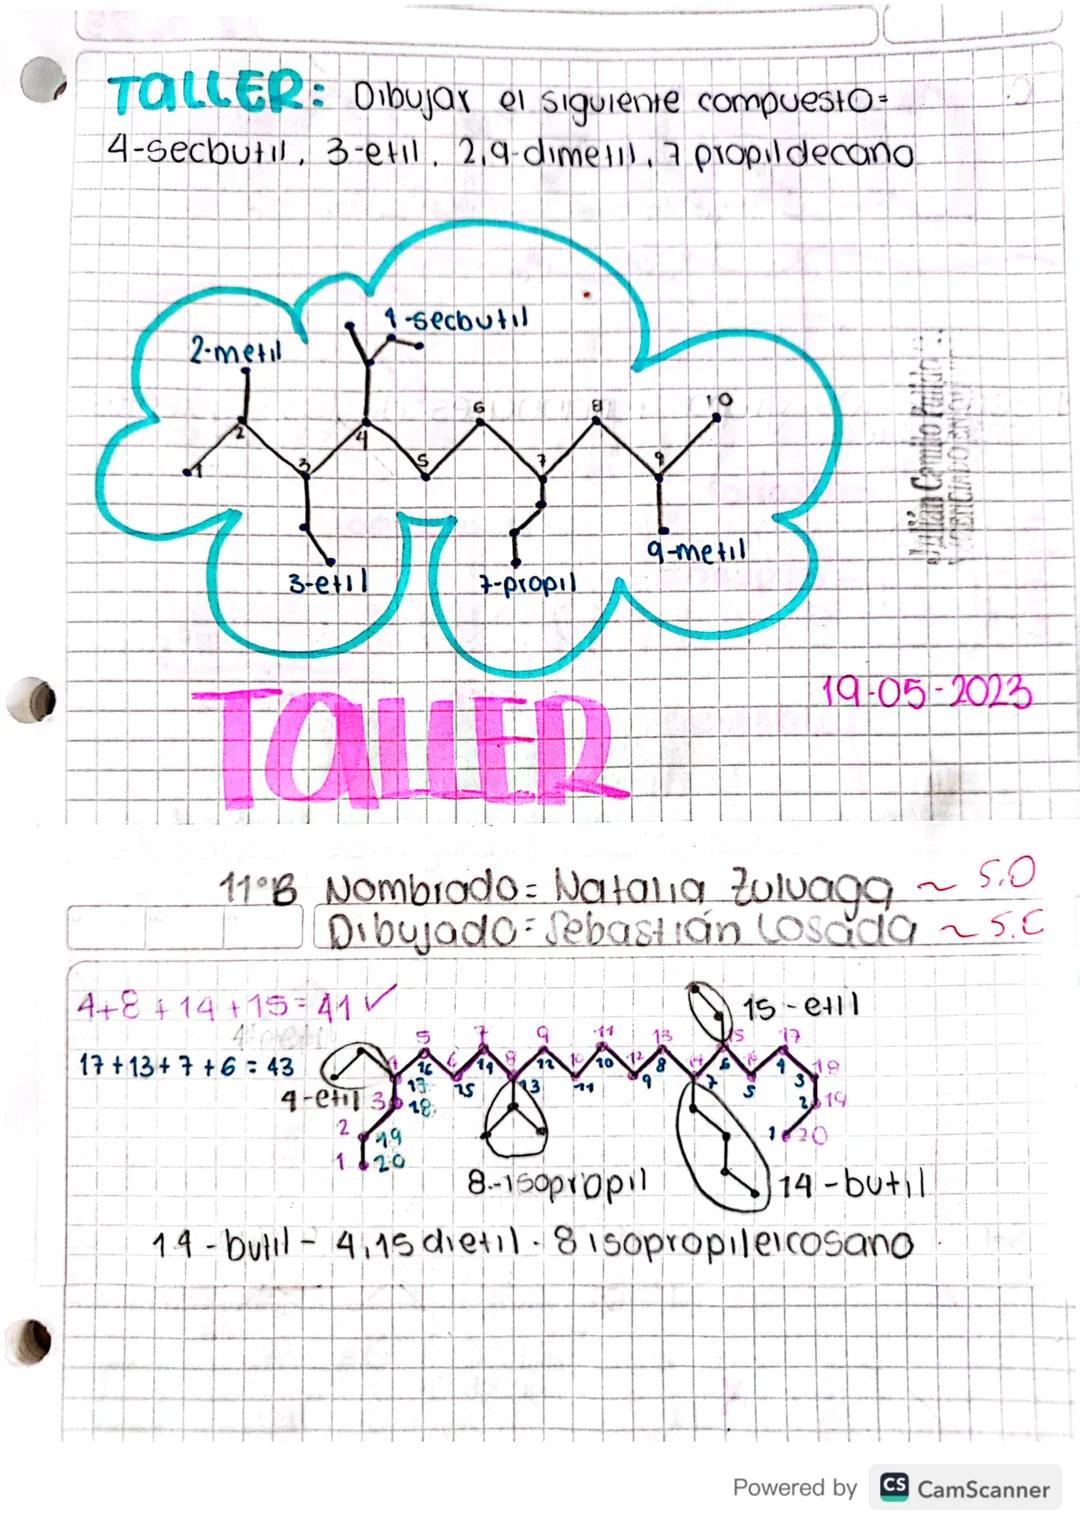 TALLER: Dibujar el siguiente compuesto=
4-secbutil, 3-etil, 2,9-dimetil, 7 propildecano
4-secbutil
2-metil
10
6
8
2
4
3
5
7
9
1
9-metil
3-etil
7-propil
19-05-2023
TALLER
11°B Nombrado= Natalia Zuluaga ~ 5.0
Dibujado= Sebastián Losada ~ 5.0
4+8+14+15=41 ✓
15-etil
17+13+7+6=43
5 7 9 11 13 15 17
4 6 8 10 12 14 16 18
16 14 12 10 8 6 4
17 15 13 11 9 7 5 3
4-etil 3 18 2 19
2 19 1 20
1 20
8-isopropil
14-butil
14-butil-4,15 dietil-8 isopropileicosano
Powered by CS CamScanner